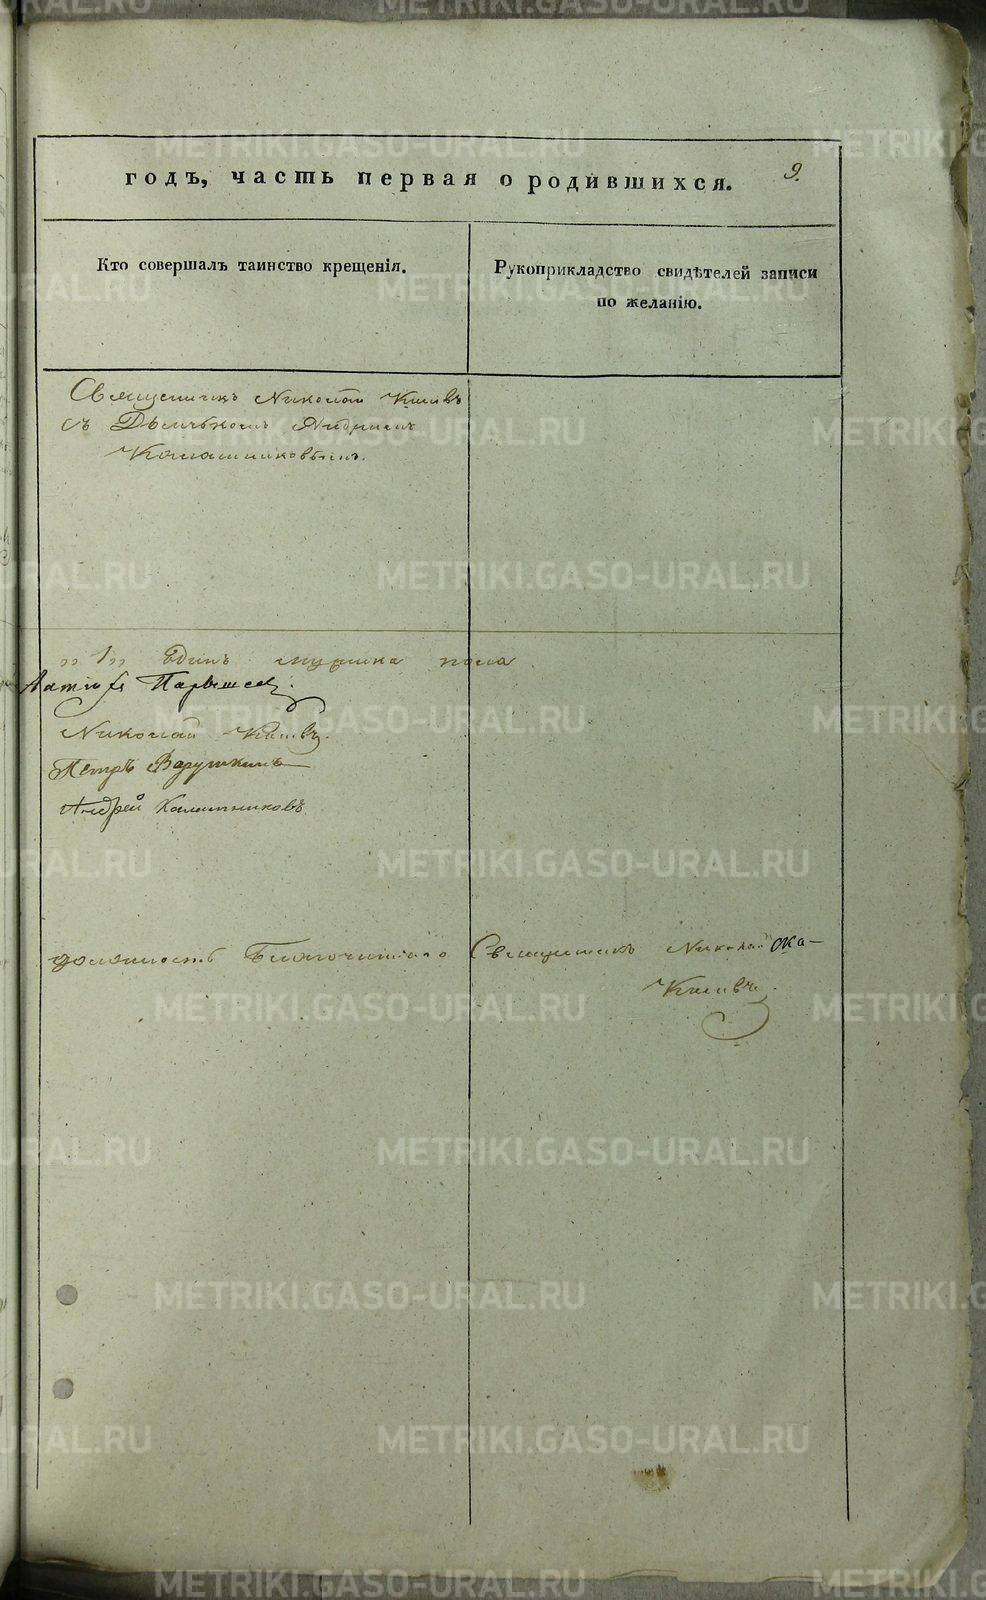 годъ, часть первая о родившихся. 9.
Кто совершалъ таинство крещенія.
Рукоприкладство свидѣтелей записи
по желанію.
Священникъ Николай
съ Дьячкомъ Андреемъ
Калашниковымъ.
„ 1 „ Единъ мужеска пола
Николай
Петръ Варушкинъ
Андрей Калашниковъ
должность Благочиннаго Священникъ Николай
METRIKI.GASO-URAL.RU